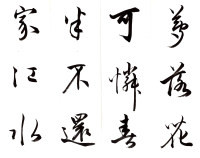 夢落花
可憐春
半不還
家江水